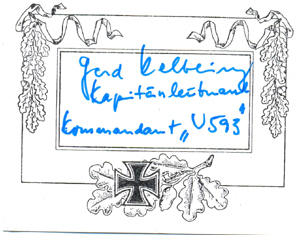 Gerd Kelbling
Kapitänleutnant
Kommandant „U 593“